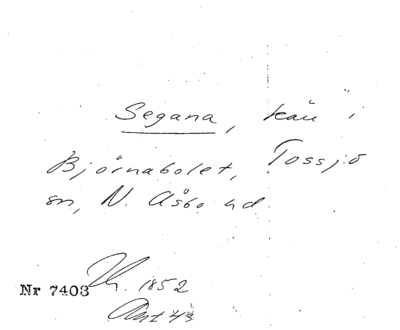 Segana, kär i
Björnabolet, Tossjö
sn, N. Åsbo hd
Nr 7403
1852